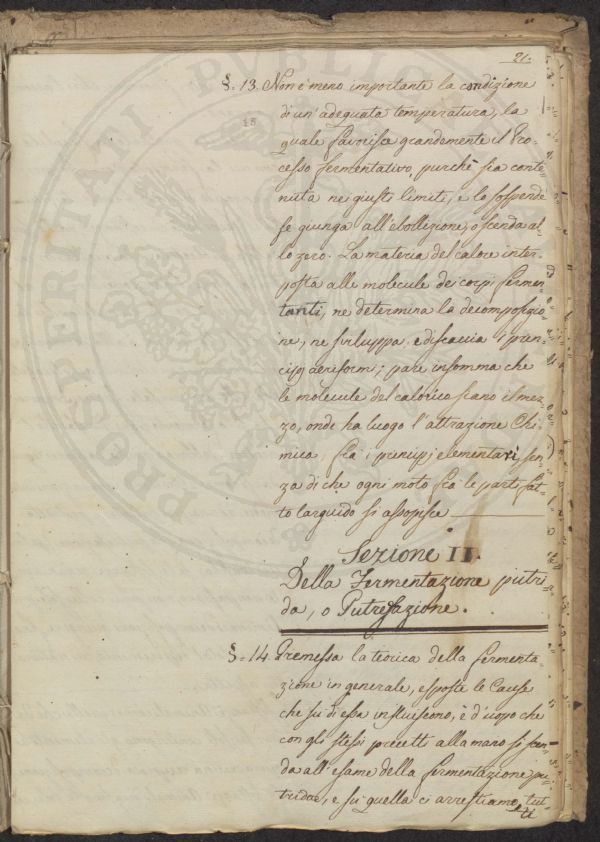 21.
§. 13. Non è meno importante la condizione
di un' adeguata temperatura, la
15
quale favorisce grandemente il Pro-
cesso fermentativo, purchè sia conte-
nuta ne giusti limiti, e lo sospende
se giunga all' ebollizione, o scenda al
lo zero. La materia del calore inter-
posta alle molecule dei corpi fermen-
tanti, ne determina la decomposizio-
ne, ne sviluppa, e discaccia i prin-
cipj aeriformi; pare insomma che
le molecule del calorico siano il mez-
zo, onde ha luogo l' attrazione Chi-
mica, fra i principj elementari, sen-
za di che ogni moto fra le parti fat-
to languido si assopisce
Sezione II.
Della Fermentazione putri-
da, o Putrefazione.
§. 14. Premessa la teorica della fermenta-
zione in generale, esposte le Cause
che su di essa influiscono, è d'uopo che
con gli stessi precetti alla mano si scen-
da all' esame della fermentazione pu-
tridae, e su quella ci arrestiamo tut-
ti
PROSPERITATI PUBLICAE